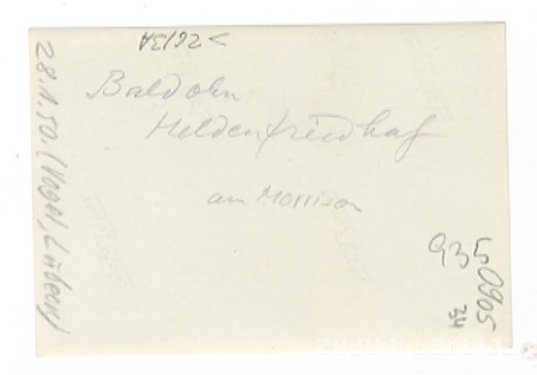 26/3A
Baldohn
Heldenfriedhof
am Morrison
28.1.50. (Vogel, Lübeck)
935
0905
34